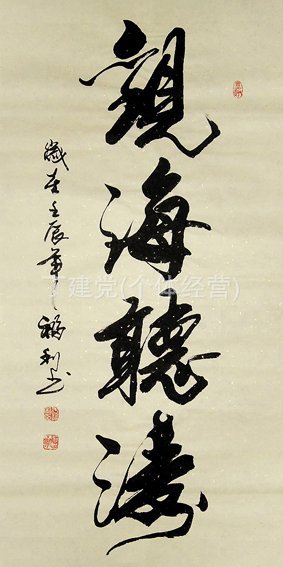 觀海聽濤
歲在壬辰年
利書
建克(个体经营)